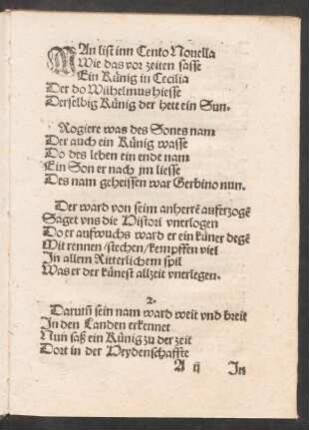 MAn list inn Cento Nouella
Wie das vor zeiten sasse
Ein Künig in Cecilia
Der do Wilhelmus hiesse
Derselbig Künig der hett ein Sun.
Rogiere was des Sones nam
Der auch ein Künig wasse
Do des leben ein ende nam
Ein Son er nach jm liesse
Des nam geheissen war Gerbino nun.
Der ward von seim anherrē aufferzogē
Saget vns die Histori vnerlogen
Do er auffwuchs ward er ein küner degē
Mit rennen/stechen/kempffen viel
In allem Ritterlichem spil
Was er der künest allzeit vnerlegen.
2.
Darum̄ sein nam ward weit vnd breit
In den Landen erkennet
Nun saß ein Künig zu der zeit
Dort in der Heydenschaffte
A ij In